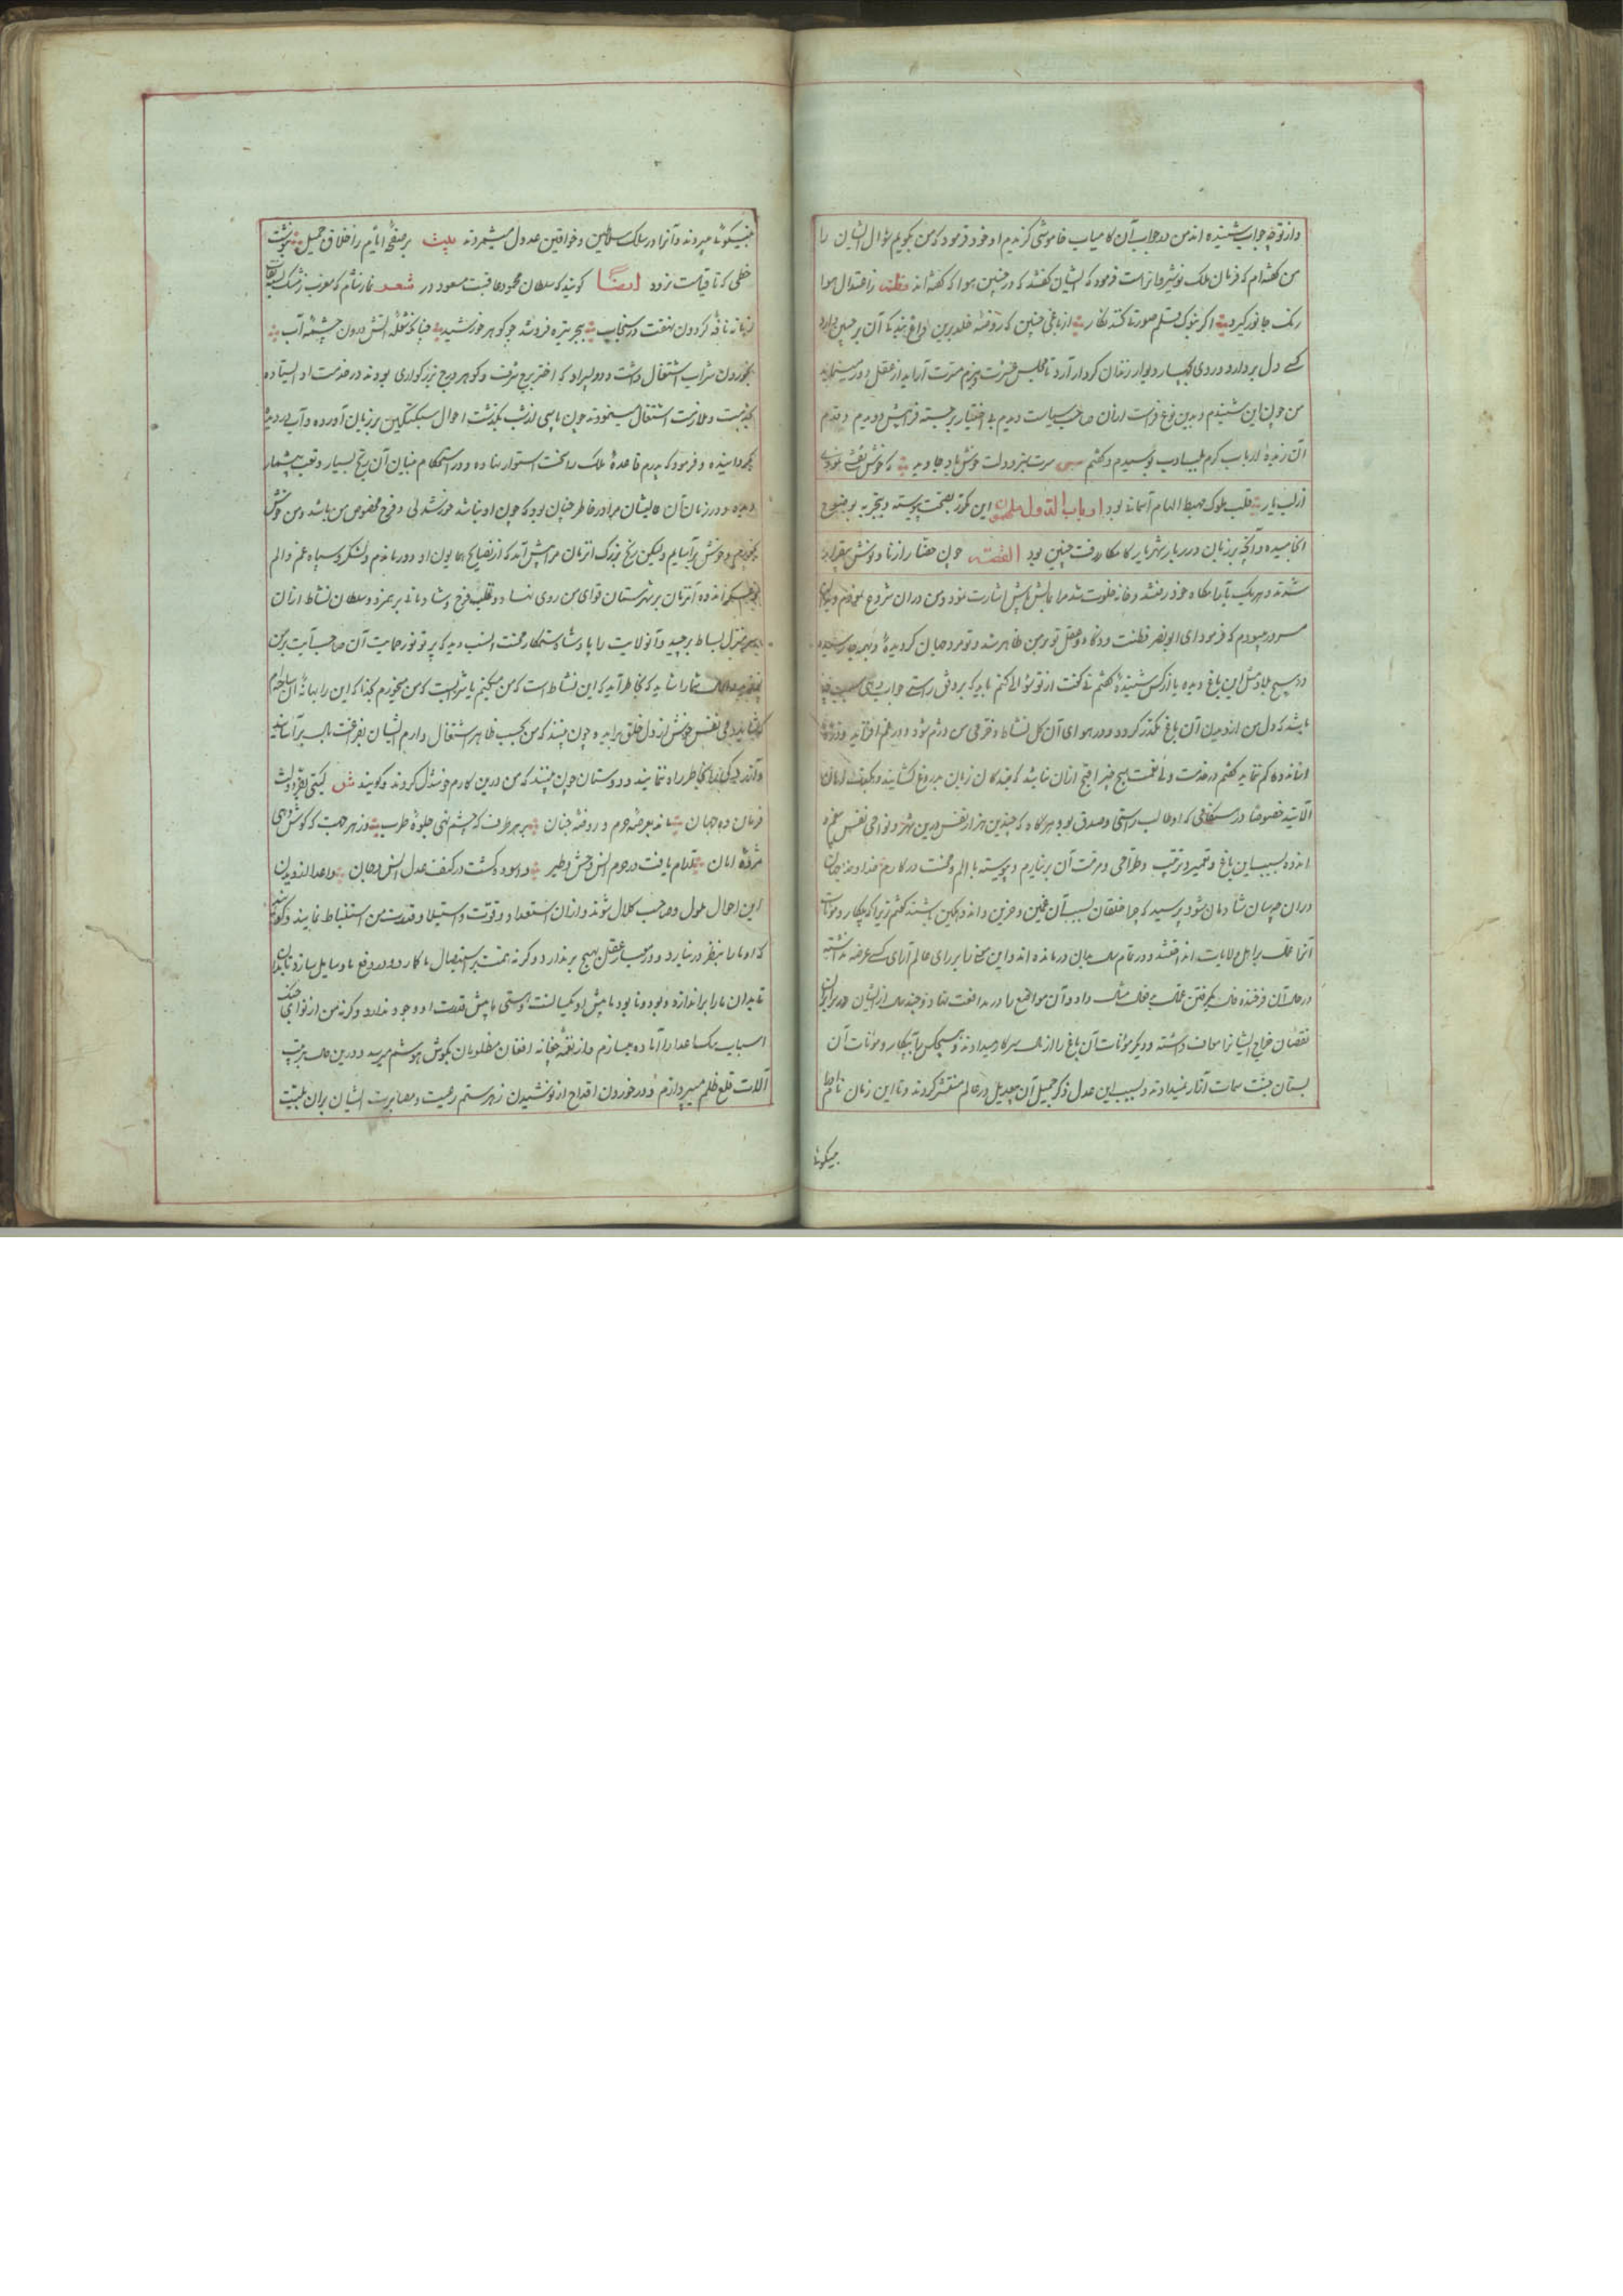 و از تو چه جواب شنیده اند من در جواب آن کامیاب خاموشی گزیدم او خود فرمود که من بگویم سؤال ایشان را
من گفته‌ام که فرمان ملک نوشیروانراست فرمود که ایشان گفتند که در چنین هوا که گفته اند ز اعتدال هوا
رنگ جانور گیرد اگر بنوک قلم صورتی کند نگار از باغی چنین که روضه خلد برین داغ بندگی آن بر جبین دارد
کسی دل بردارد و روی بدیوار زندان کردار آرد تا مجلس عشرت و بزم مسرت آراید از عقل دور مینماید
من چون این شنیدم و بدین نوع فراست ازان صاحب سیاست دیدم بی اختیار برجسته فرا پیش دویدم و قدم
آن زبدهٔ ارباب کرم بلب ادب بوسیدم و گفتم سرت سبز و دولت خوش باد جاوید که خوش
از لب یار قلب ملوک مهبط الهام آسمانی بود ارباب الدول ملهمون این مکرر بصحت پیوسته و بتجربه بوضوح
انجامیده و آنچه بر زبان دربار شهریار کامکار رفت چنین بود القصه چون حضار از ناو نوش بیقرار
شدند و هر یک بآرامگاه خود رفتند و خانه خلوت شد مرا بمالش پایش اشارت نمود و من دران شروع نمودم
مسرور میبودم که فرمود ای ابونصر فطنت و ذکا و عقل تو بر من ظاهر شد و تو مرد جهان گردیدهٔ و بهمه جا رسیده
در هیچ بلاد مثل این باغ دیده یا از کس شنیدهٔ گفتم نی گفت از تو سؤالی کنم باید که بر وفق راستی جواب دهی سبب چه
باشد که دل من از دیدن آن باغ مکدر گردد و در هوای آن گل نشاط و خرمی من دژم شود و در غم افتاند
اندازه گم نماید گفتم در خدمت ولی نعمت هیچ چیز اقبح ازان نباشد که بندگان زبان بدروغ گشایند
البته خصوصا در هنگامی که او طالب راستی و صدق بود هرگاه که چندین هزار نفس درین شهر و نواحی نفس
اندوه بسبب این باغ و تعمیر و ترتیب و طراحی و مرمت آن برنیارم و پیوسته با الم و محنت در کارند خداوند جهان
دران چه سان شادمان شود پرسید که چرا خلقان بسبب آن غمگین و حزین و اندوهگین باشند گفتم زیرا که بیگار و مؤنات
آنرا بر اهل ولایات انداختند و در تمام سال بدان درمانده اند و این سخن را بر رای عالم آرای کسی عرضه نداشته
در حال آن فرخنده فال مثال داد و آن مواضع را در مدافعت نهاد و چند سال از ایشان
نقصان خراج ایشانرا معاف داشته و دیگر مؤنات آن باغ را از مال سرکار میدادند و هیچکس را به بیگار و مؤنات آن
بستان جنت سمات آثار نمیدادند و بسبب این عدل ذکر جمیل آن بیعدیل در عالم منتشر گردید و تا این زمان نام او
بنیکوئی
بنیکوئی میبردند و آنرا در سلک سلاطین و خواقین عدول میشمردند بیت بر صفحهٔ ایام ز اخلاق جمیل بنوشت
خطی که تا قیامت نرود ایضا گویند که سلطان محمود عاقبت مسعود در شعر نماز شام که مغرب ز مشک
نافه گردون نهفت در سنجاب ببحر تیره فرو شد چو گوهر خورشید چنانکه شعله آتش درون چشمهٔ آب
بخوردن شراب اشتغال داشت و دو پسر او که اختر برج شرف و گوهر درج بزرگواری بودند در خدمت او ایستاده
بخدمت و ملازمت اشتغال مینمودند چون پاسی از شب بگذشت احوال سبکتگین بر زبان آورده و آب در دیده
بگردانیده و فرمود که پدرم قاعدهٔ ملک را سخت استوار نهاده و در استحکام بنیان آن رنج بسیار و تعب بیشمار
دیده و در زمان آن عالیشان مرا در خاطر چنان بود که چون او نباشد خورشدلی و فرح مخصوص من باشد و من خوش
بخورم و خوش برآسایم ولیکن رنج بزرگ آنزمان مرا پیش آمد که از نصایح همایون او دور ماندم و لشکر و سپاه غم و الم
اندوه آنزمان بر شهرستان قوای من روی نهاد و قلب فرح و شادمانی برهم زد و سلطان نشاط ازان
منزل بساط برچید و آنولایت را پادشاه ستمکار محنت انسب دید که پرتو نور حمایت آن صاحب آیت بر من
شما را نباید که بخاطر آید که این نشاط است که من میکنم یا شرابست که من میخورم بخدا که این را بهانهٔ آن ساخته‌ام
نفس خوش از دل خلق برآید چون بینند که من بحسب ظاهر اشتغال دارم ایشان بفراغت بال برآسایند
و اندیشه بخاطر راه ننمایند و دوستان چون بینند که من درین کارم خوشدل گردند و گویند گیتی بفر دولت
فرمان ده جهان ماند بعرصهٔ حرم و روضهٔ جنان بر هر طرف که چشم نهی جلوهٔ طرب وز هر جهت که گوش دهی
مژدهٔ امان آرام یافت در حرم انس وحش و طیر و آسوده گشت در کنف عدل انس و جان و اعدا از دیدن
این احوال ملول و صاحب کلال شوند و ازان استعداد و قوت و استیلا و قدرت من استنباط نمایند و گویند
که او ما را بنظر در نیارد و در حساب عقل بهیچ برندارد وگرنه همت بر استیصال ما گمارد و در دفع ما وسایل سازد
تا بدان ما را براندازد و بود و نابود ما پیش او یکسانست و هستی ما پیش قدرت او وجود ندارد وگرنه من از نوای چنگ
اسباب هلاک اعدا را آماده میسازم و از نغمهٔ چغانه افغان مظلومان بگوش هوشم میرسد و درین حال بترتیب
آلات قلع ظلم میپردازم و در خوردن اقداح از نوشیدن زهر ستم رعیت و مصابرت ایشان بران بلیت